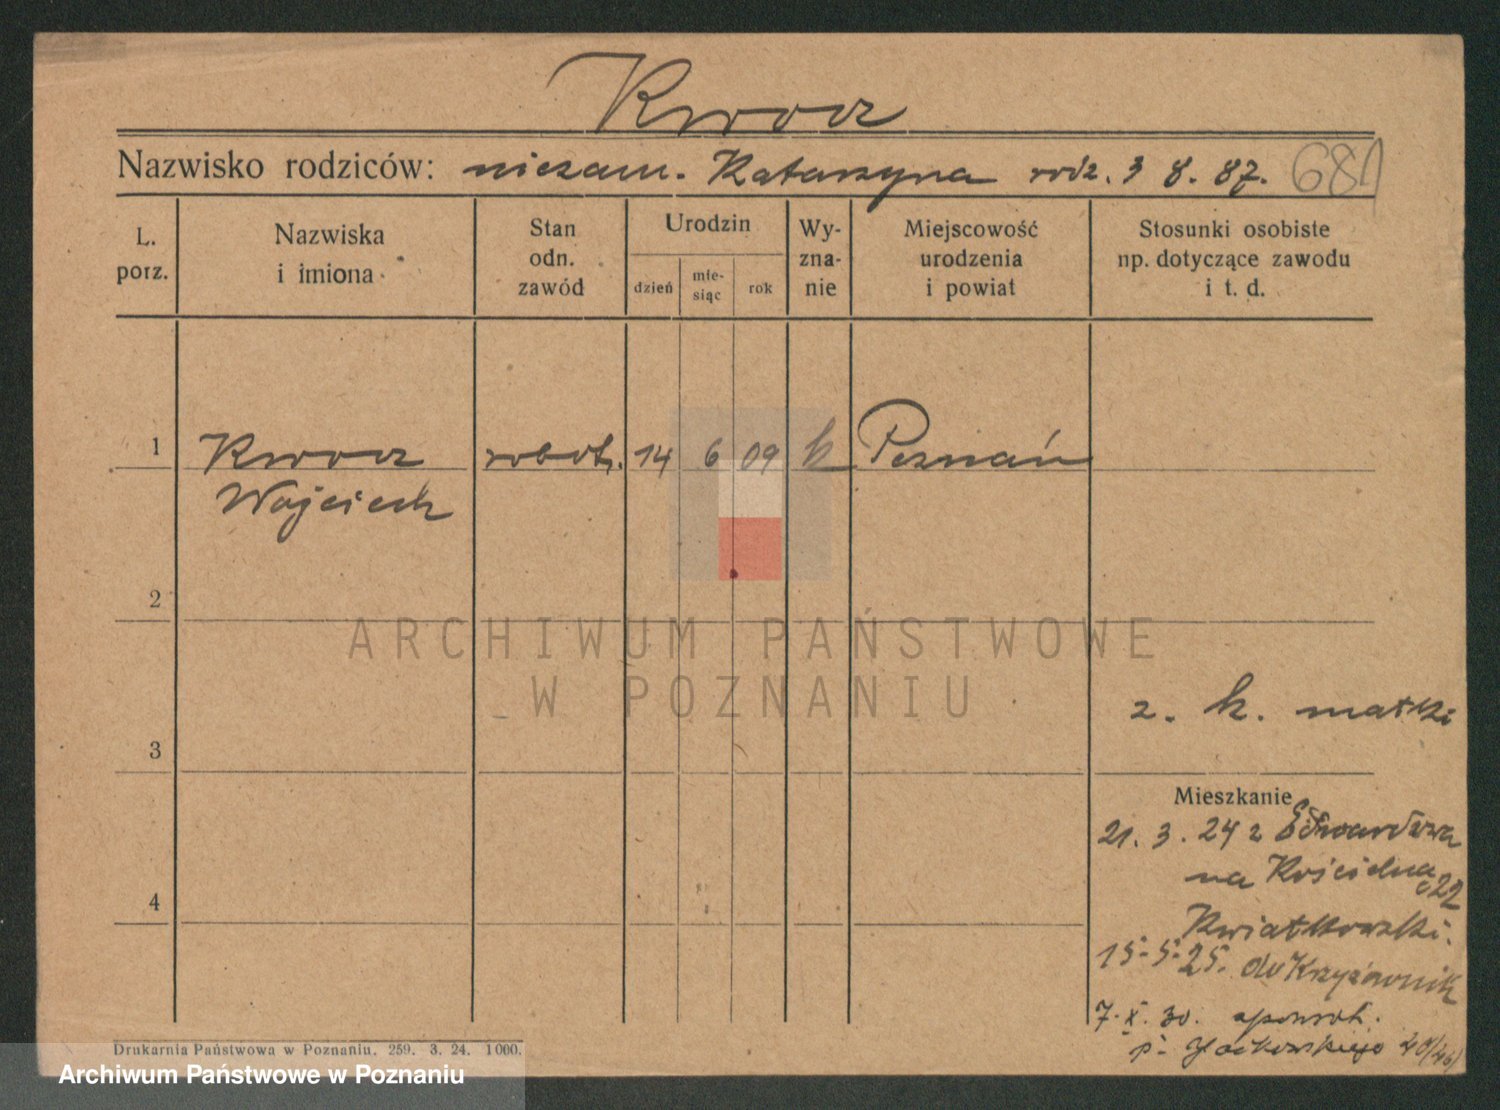 Kwocz
Nazwisko rodziców: niezam. Katarzyna rodz. 3 8. 87. 681
L. porz.
Nazwiska i imiona
Stan odn. zawód
Urodzin
dzień
mie-siąc
rok
Wy-zna-nie
Miejscowość urodzenia i powiat
Stosunki osobiste np. dotyczące zawodu i t. d.
1 Kwocz robotn. 14 6 09 k Poznań
Wojciech
2
ARCHIWUM PAŃSTWOWE
W POZNANIU
z. k. matki
3
Mieszkanie
21. 3. 24 z Edwardowa
na Kościelna 22
4
Kwiatkowski.
15.5.25. do Krzyżownik
7. X. 30. z powrot.
p. Jackowskiego
Drukarnia Państwowa w Poznaniu. 259. 3. 24. 1000.
Archiwum Państwowe w Poznaniu